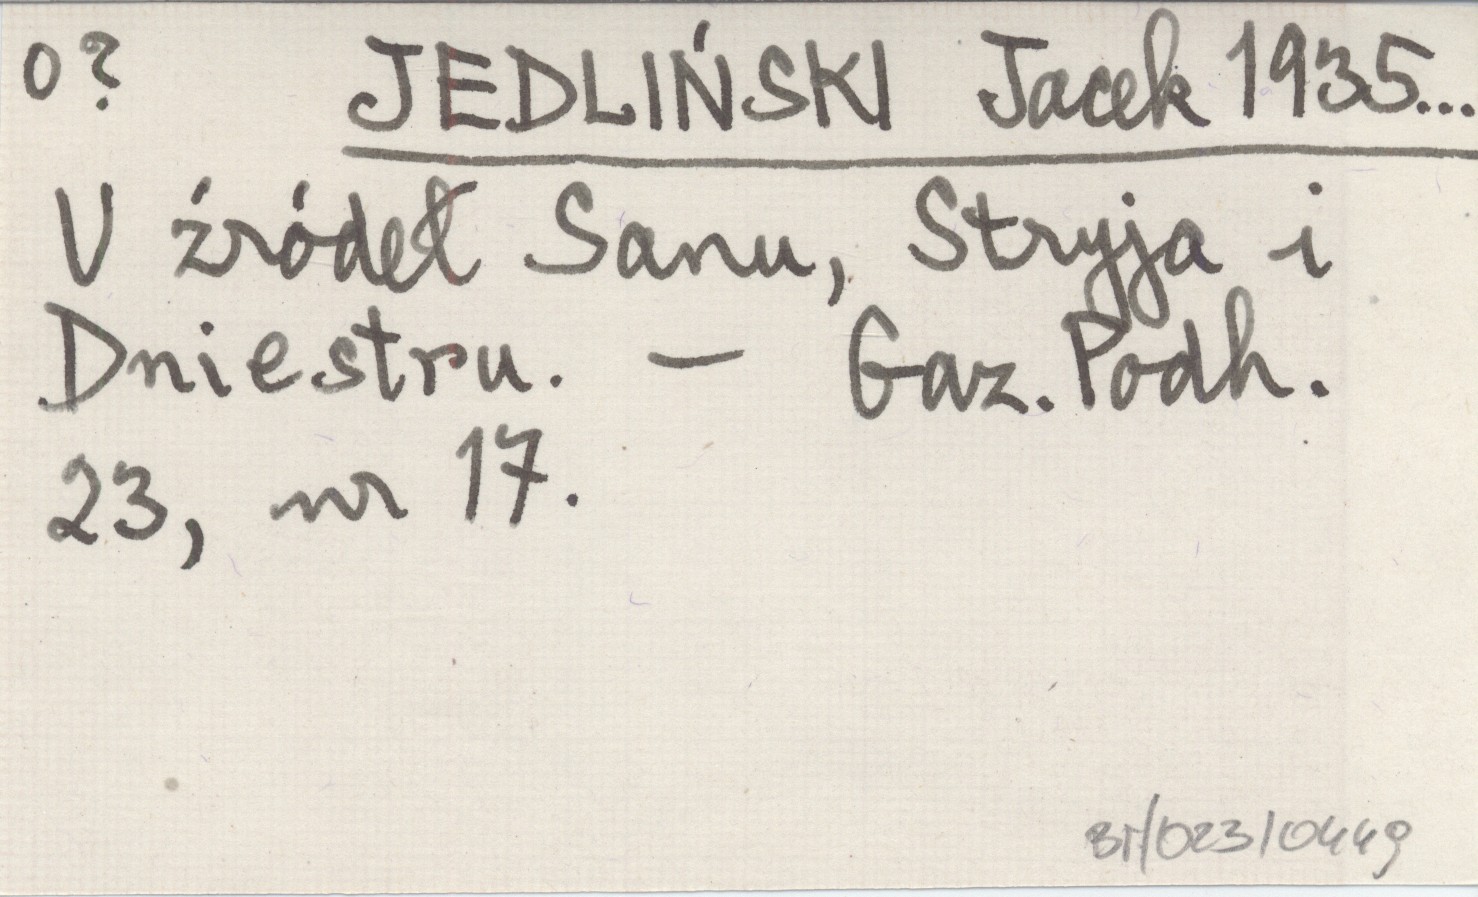 o? JEDLIŃSKI Jacek 1935...
U źródeł Sanu, Stryja i
Dniestru. — Gaz. Podh.
23, nr 17.
BI/023/0449